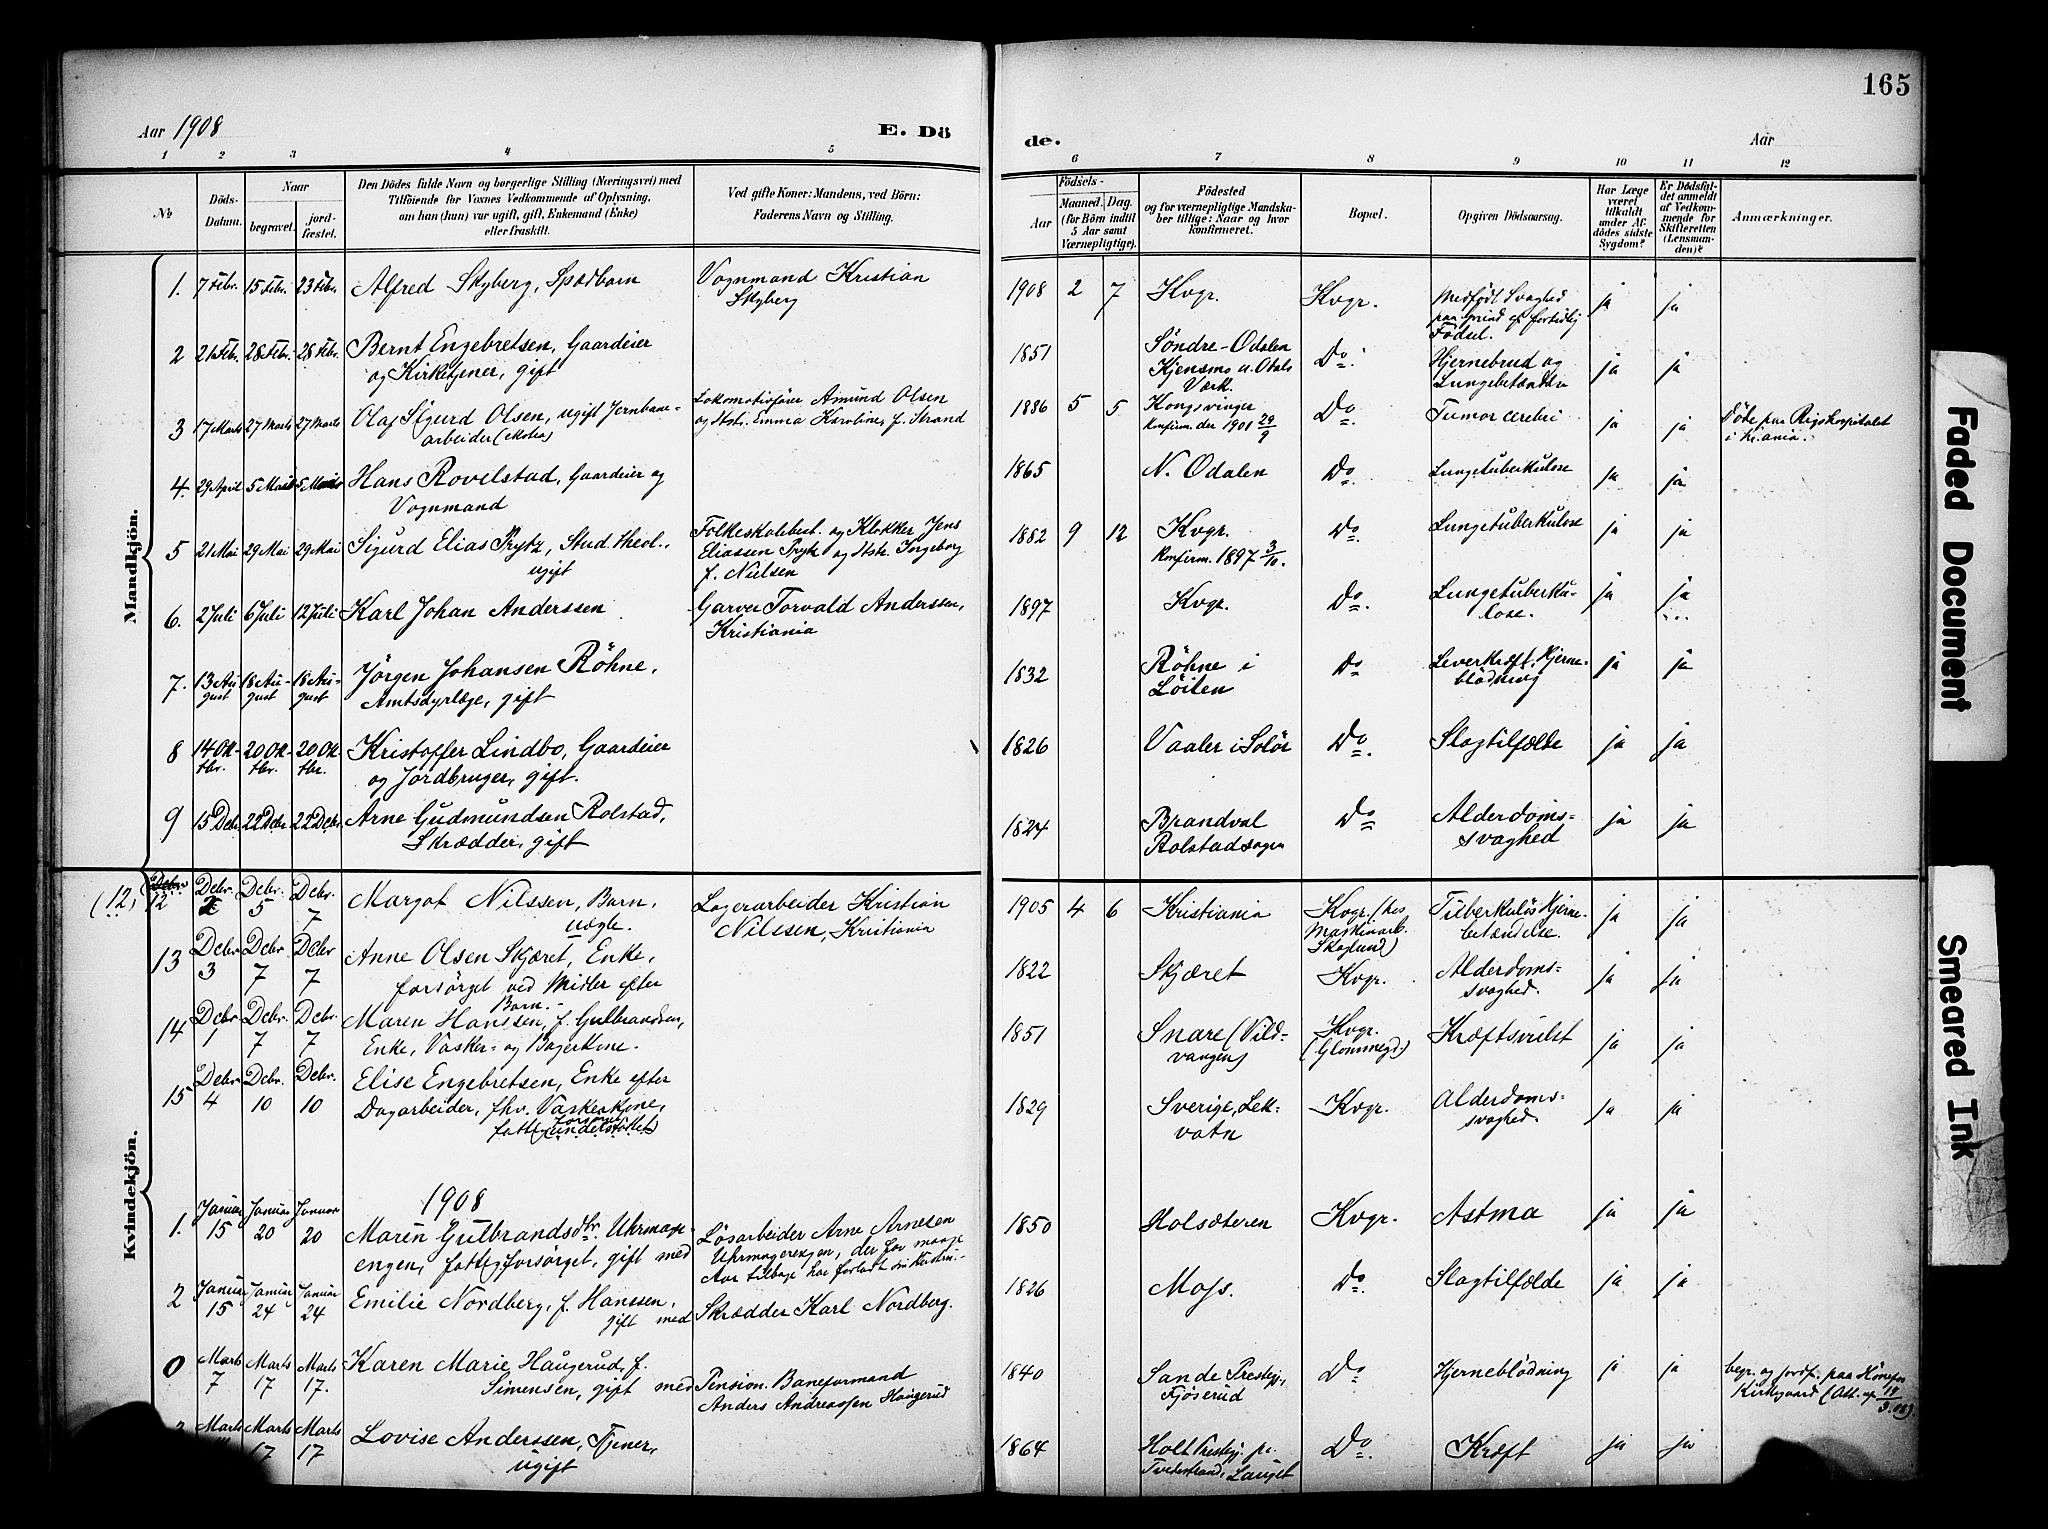 165
Aar 1908 E. Dö de. Aar
1 2 3 4 5 6 7 8 9 10 11 12
No
Döds-Datum.
Naar
begravet.
jordfæstet.
Den Dödes fulde Navn og borgerlige Stilling (Næringsvei) med
Tilföiende for Voxnes Vedkommende af Oplysning,
om han (hun) var ugift, gift, Enkemand (Enke)
eller fraskilt.
Ved gifte Koner: Mandens, ved Börn:
Faderens Navn og Stilling.
Födsels-
Aar
Maaned. Dag.
(for Börn indtil
5 Aar samt
Værnepligtige).
Födested
og for værnepligtige Mandska-
ber tillige: Naar og hvor
konfirmeret.
Bopæl.
Opgiven Dödsaarsag.
Har Læge
været
tilkaldt
under Af-
dödes sidste
Sygdom?
Er Dödsfal-
det anmeldt
af Vedkom-
mende for
Skifteretten
(Lensman-
den)?
Anmærkninger.
Mandkjön.
1. 7 Febr. 15 Febr. 23 Febr. Alfred Skyberg, Spædbarn Vognmand Kristian
Skyberg
1908 2 7 Kvgr. Kvgr. Medfödt Svaghed
paa Grund af fortidlig
Födsel. ja ja
2 21 Febr. 28 Febr. 28 Febr. Bernt Engebretsen, Gaardeier
og Kirketjener, gift
1851 Söndre-Odalen
Kjensmo u. Odals
Værk. Do. Hjernebrud og
Lungebetændelse ja ja
3 17 Marts 27 Marts 27 Marts Olaf Sigurd Olsen, ugift Jernbane-
arbeider
Lokomotivförer Amund Olsen
og Hstr. Emma Karoline, f. Strand
1886 5 5 Kongsvinger
Konfirm. der 1901 29/9 Do. Tumor cerebri ja ja Döde paa Rigshospitalet
i Kr.ania.
4. 29 April 5 Mai 5 Mai Hans Rovelstad, Gaardeier og
Vognmand
1865 N. Odalen Do. Lungetuberkulose ja ja
5 21 Mai 29 Mai 29 Mai Sigurd Elias Prytz, Stud. theol.,
ugift
Folkeskolebest. og Klokker Jens
Eliassen Prytz og Hstr. Ingeborg
f. Nielsen
1882 9 12 Kvgr.
Konfirm. 1897 3/10. Do. Lungetuberkulose ja ja
6. 2 Juli 6 Juli 12 Juli Karl Johan Anderssen Garver Torvald Anderssen,
Kristiania
1897 Kvgr. Do. Lungetuberku-
lose. ja ja
7. 13 Au-gust 18 Au-gust 18 Au-gust Jörgen Johansen Röhne,
Amtsdyrlæge, gift
1832 Röhne i
Löiten Do Leverkræft, Hjerne-
blödning ja ja
8 14 Oktbr. 20 Oktbr. 20 Oktbr. Kristoffer Lindbo, Gaardeier
og Jordbruger, gift.
1826 Vaaler i Solör Do. Slagtilfælde ja ja
9 15 Debr. 22 Debr. 22 Debr. Arne Gudmundsen Rolstad,
Skrædder, gift
1824 Brandval
Rolstadsogn Do Alderdoms-
svaghed ja ja
Kvindekjön.
(12) Debr.
12 Debr. 2 Debr. 5 Debr. 7 Margot Nilssen, Barn,
uægte.
Lagerarbeider Kristian
Nilssen, Kristiania
1905 4 6 Kristiania Kvgr. (hos
Maskinarb.
Skoglund) Tuberkulös Hjerne-
betændelse. ja ja
13 Debr 3 Debr. 7 Debr 7 Anne Olsen Skjæret, Enke,
forsörget ved Midler efter
Barn.
1822 Skjæret Kvgr. Alderdoms-
svaghed. ja ja
14 Debr 1 Debr. 7 Debr. 7 Maren Hanssen, f. Gulbrandsen,
Enke, Vasker- og Bagerkone.
1851 Snare (Vild-
vangen) Kvgr.
(Glommegd.) Kræftsvulst ja ja
15 Debr 4 Debr. 10 Debr. 10 Elise Engebretsen, Enke efter
Dagarbeider, fhv. Vaskerkone,
fattigunderstöttet
1829 Sverige, Lek-
vatn Kvgr. Alderdoms-
svaghed. ja ja
1908
1. Januar 15 Januar 20 Januar 20 Maren Gulbrandsdtr. Uhrmager-
engen, fattigforsörget, gift med
Lösarbeider Arne Arnesen
Uhrmagerengen, der for mange
Aar tilbage har forladt sin Hustru.
1850 Holsæteren Kvgr. Astma ja ja
2 Januar 15 Januar 24 Januar 24 Emilie Nordberg, f. Hanssen,
gift med Skrædder Karl Nordberg.
1826 Moss. Do. Slagtilfælde ja ja
0 Marts 7 Marts 17 Marts 17. Karen Marie Haugerud, f.
Simensen, gift med Pension. Baneformand
Anders Andreassen Haugerud
1840 Sande Prestegj.,
Fjöserud Do Hjerneblödning ja ja begr. og jordf. paa Hönefos
Kirkegaard (Att. af 19/3.08).
Marts Marts 17 Marts 17 Lovise Anderssen, Tjener,
ugift
1864 Holt Prestegj. pr.
Tvedestrand, Lauget Do. Kræft ja ja
Faded Document
Smeared Ink